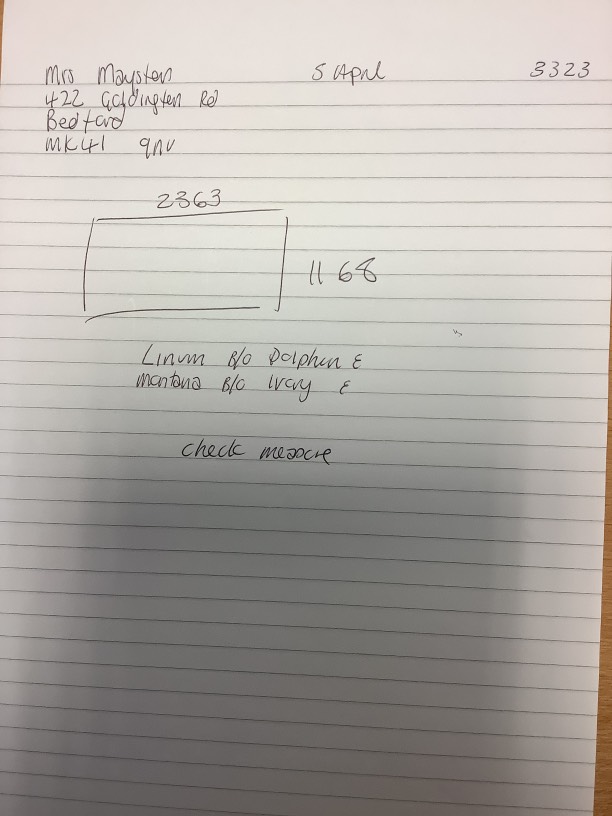 Mrs Maysten 5 April 3323
422 Goldington Rd
Bedford
MK41 9NU
2363
1168
Linum B/O Dolphin £
montana B/O Ivory £
check measure